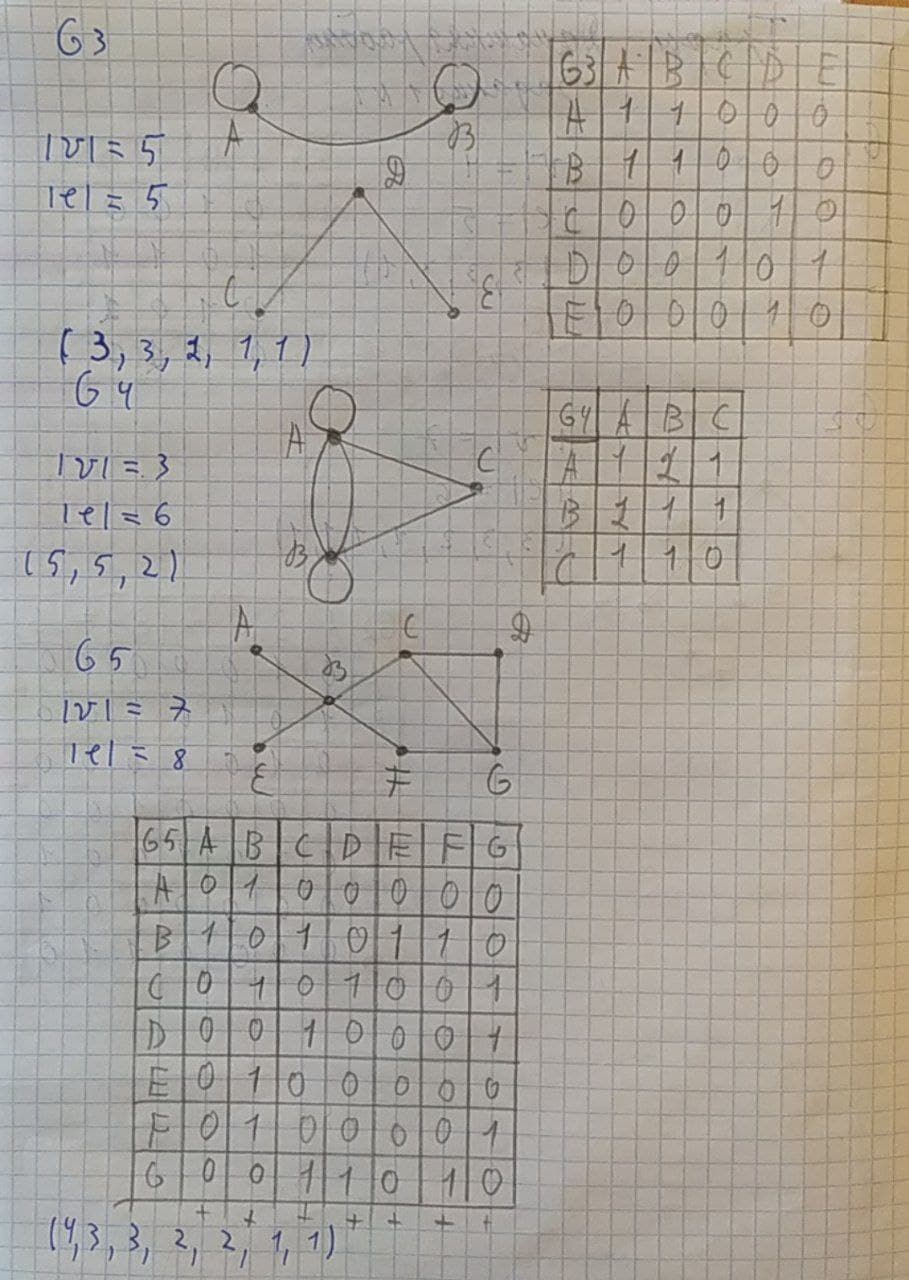 G3
A B
|v| = 5
|e| = 5
D
C E
(3, 3, 2, 1, 1)
G3 A B C D E
A 1 1 0 0 0
B 1 1 0 0 0
C 0 0 0 1 0
D 0 0 1 0 1
E 0 0 0 1 0
G4
|v| = 3
|e| = 6
(5, 5, 2)
A
C
B
G4 A B C
A 1 2 1
B 2 1 1
C 1 1 0
G5
|v| = 7
|e| = 8
A C D
B
E F G
G5 A B C D E F G
A 0 1 0 0 0 0 0
B 1 0 1 0 1 1 0
C 0 1 0 1 0 0 1
D 0 0 1 0 0 0 1
E 0 1 0 0 0 0 0
F 0 1 0 0 0 0 1
G 0 0 1 1 0 1 0
+ + + + + + +
(4, 3, 3, 2, 2, 1, 1)